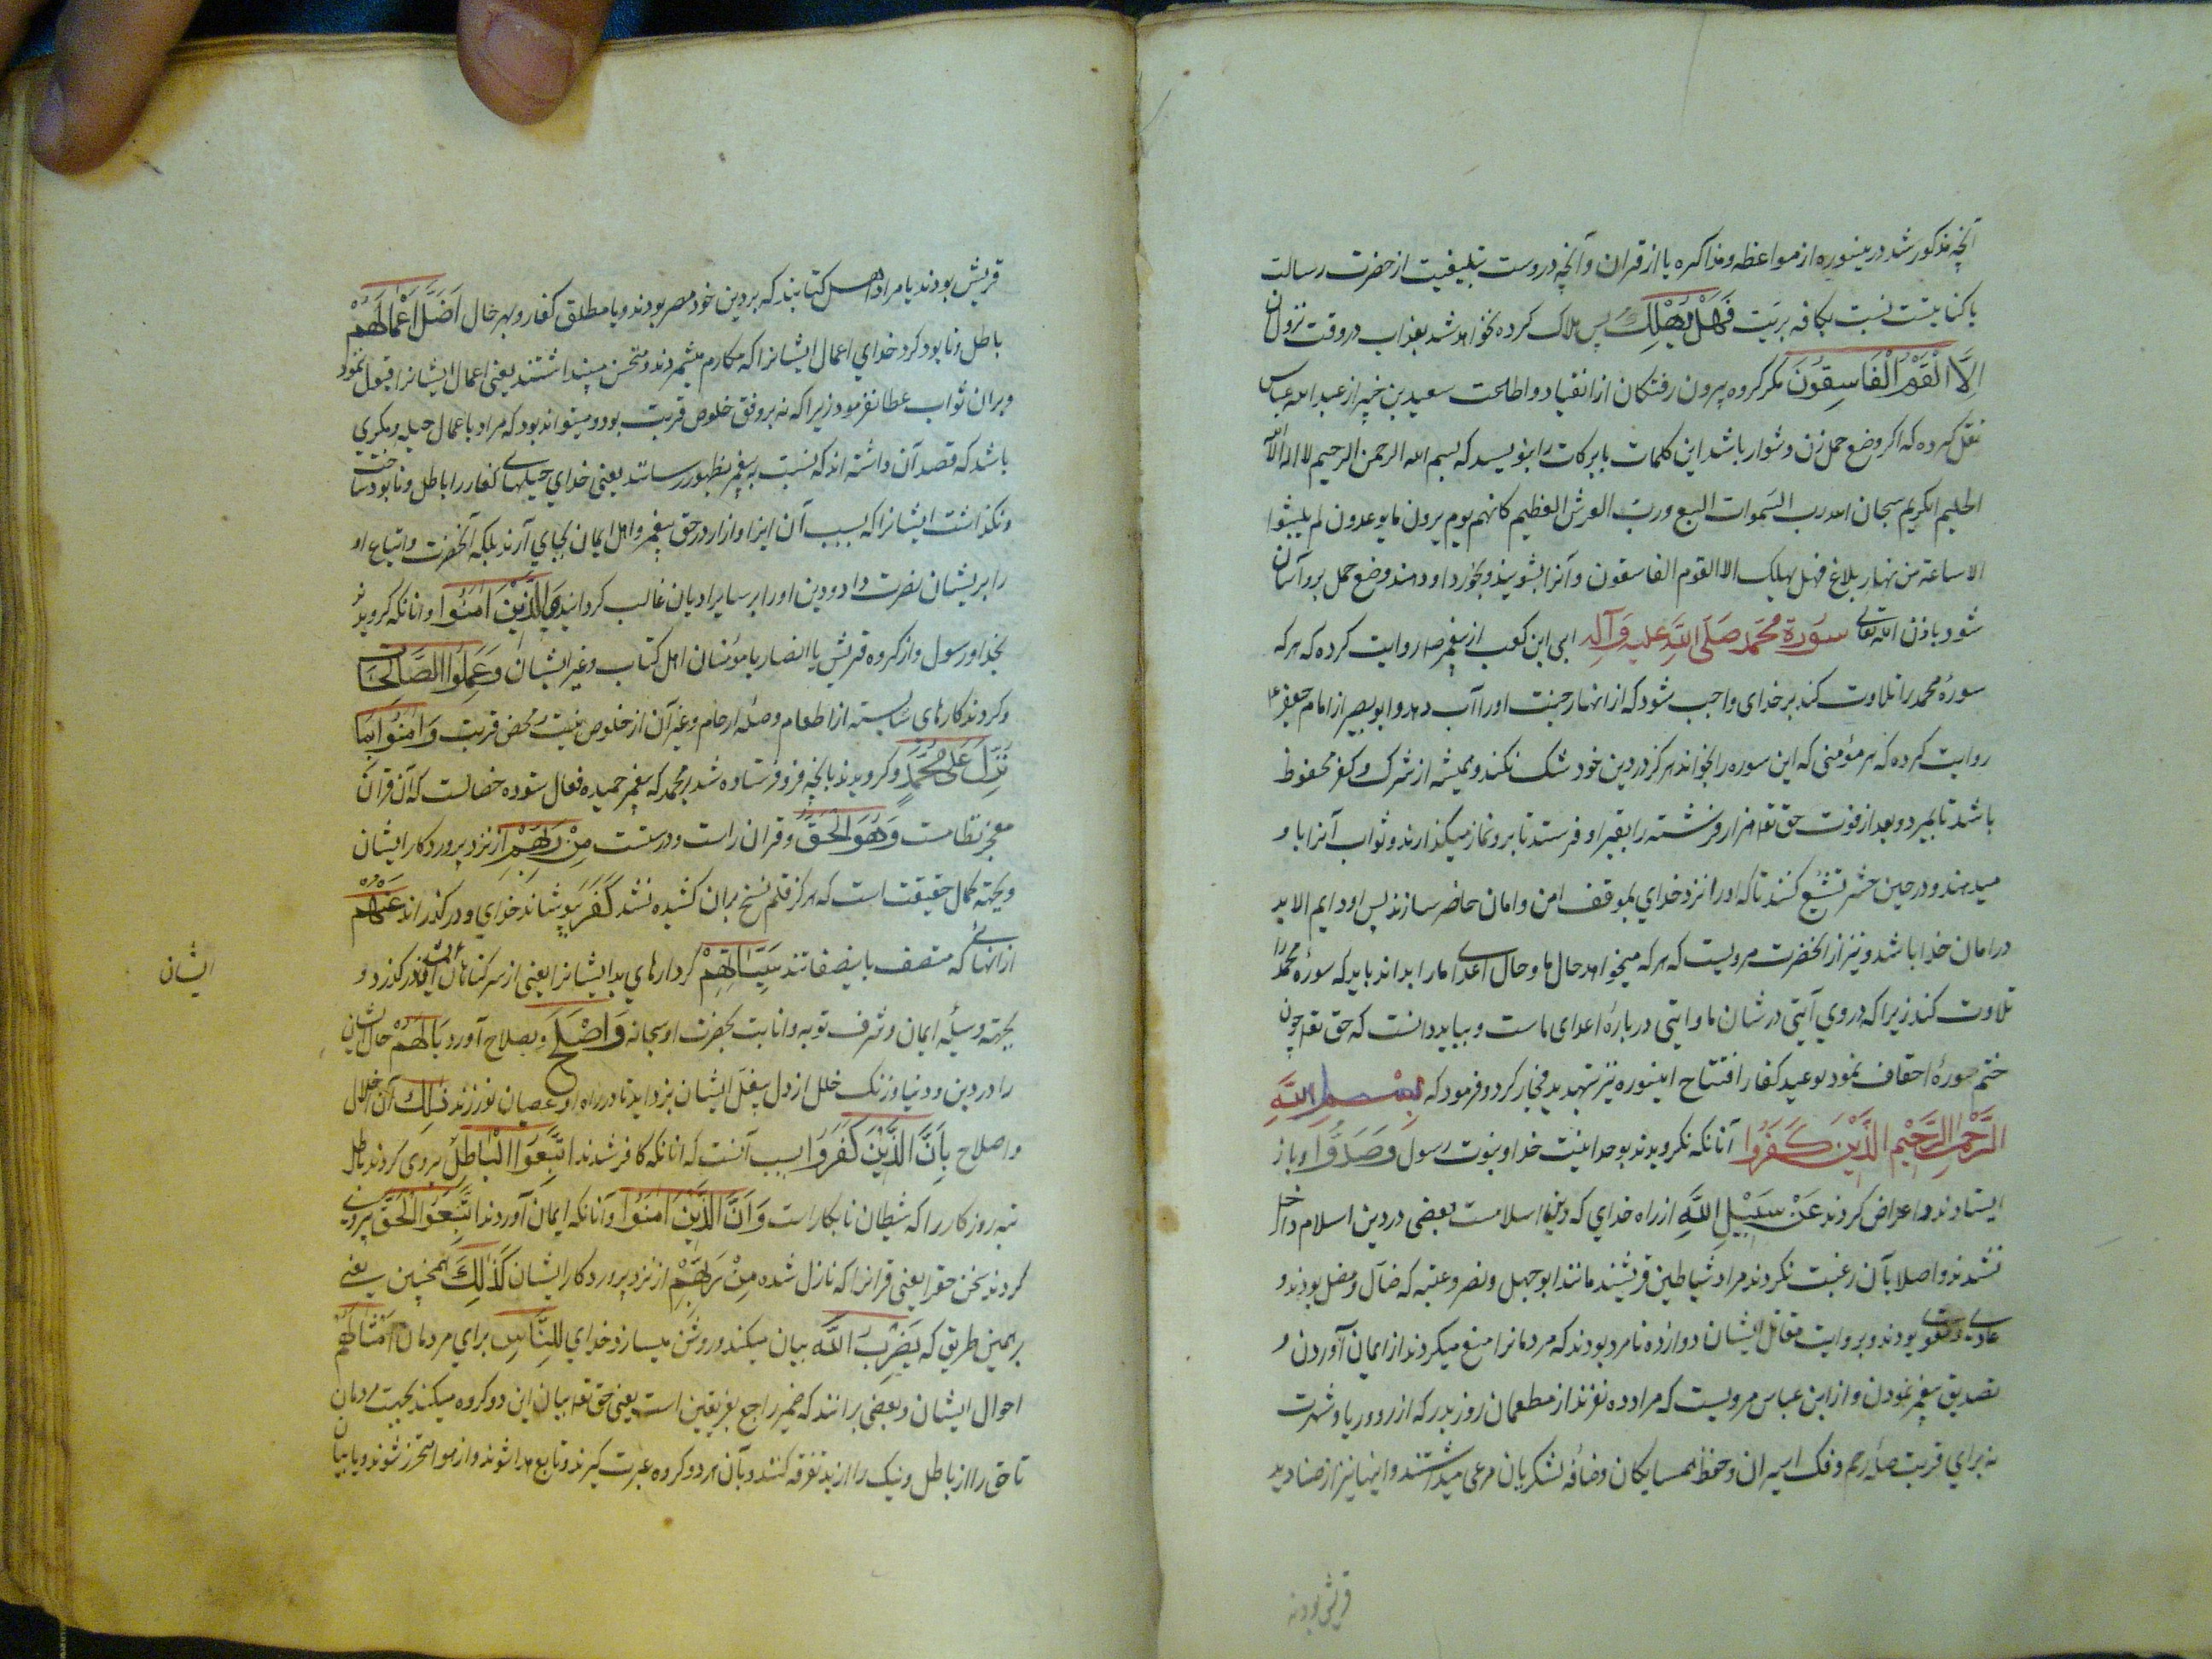 آنچه مذکور شد درینسوره از مواعظه و مذاکره یا از قران و آنچه دروست تبلیغیت از حضرت رسالت
نسبت بکافه بریت فَهَلْ يُهْلَكُ پس هلاک کرده نخواهد شد بعذاب در وقت نزول آن
اِلَّا الْقَوْمُ الْفَاسِقُونَ مکر کروه بیرون رفتکان از انقیاد و اطاعت سعید بن جبیر از عبدالله عباس
نقل کرده که اکر وضع حمل زن دشوار باشد این کلمات بابرکات را بنویسد که بسم الله الرحمن الرحیم لا اله الا الله
الحلیم الکریم سبحان الله رب السموات السبع ورب العرش العظیم کانهم یوم یرون ما یوعدون لم یلبثوا
الا ساعة من نهار بلاغ فهل یهلک الا القوم الفاسقون و آنرا بشویند و بخورد او دهند وضع حمل برو آسان
شود باذن الله تعالی سورة محمد صلى الله عليه وآله ابی ابن کعب از پیغمبر ص روایت کرده که هر که
سورهٔ محمد را تلاوت کند بر خدای واجب شود که از انهار جنت او را آب دهد و ابو بصیر از امام جعفر ع
روایت کرده که هر مؤمنی که این سوره را بخواند هرکز در دین خود شک نکند و همیشه از شرک و کفر محفوظ
باشد تا بمیرد و بعد از فوت حق تعه هزار فرشته را بقبر او فرستد تا برو نماز میکذارند و ثواب آنرا باو
میدهند و در حین حشر تشییع کنند تا که او را نزد خدای بموقف امن و امان حاضر سازند پس او دایم الابد
در امان خدا باشد و نیز از انحضرت مرویست که هر که میخواهد حال ما و حال اعدای ما را بداند باید که سورهٔ محمد را
تلاوت کند زیرا که در وی آیتی در شان ما و ایتی در بارهٔ اعدای ماست و بباید دانست که حق تعه چون
ختم سورهٔ احقاف نمود بوعید کفار افتتاح اینسوره نیز بتهدید فجار کرد و فرمود که بِسْمِ اللهِ
الرَّحْمٰنِ الرَّحِيْمِ الَّذِيْنَ كَفَرُوا آنانکه نکرویدند بوحدانیت خدا و نبوت رسول وَصَدُّوا و باز
ایستادند و اعراض کردند عَنْ سَبِيْلِ اللهِ از راه خدای که دین اسلامست یعضی در دین اسلام داخل
نشدند و اصلا بآن رغبت نکردند مراد شیاطین قریشند مانند ابو جهل و نضر و عتبه که ضال و مضل بودند و
بودند و بروایت مقاتل ایشان دوازده نامرد بودند که مردمانرا منع میکردند از ایمان آوردن و
تصدیق پیغمبر نمودن و از ابن عباس مرویست که مراد ده نفرند از مطعمان روز بدر که از روی ریا و شهرت
نه برای قربت صلهٔ رحم و فک اسیران و حفظ همسایکان و ضافه لشکریان مرعی میداشتند و اینها نیز از صنادید
قریش بودند
قریش بودند یا مراد اهل کتابند که بر دین خود مصر بودند و یا مطلق کفار و بهر حال اَضَلَّ اَعْمَالَهُمْ
باطل و نابود کرد خدای اعمال ایشانرا که مکارم میشمردند و مستحسن میپنداشتند یعنی اعمال ایشانرا قبول ننمود
و بران ثواب عطا نفرمود زیرا که نه بر وفق خلوص قربت بود و میتواند بود که مراد باعمال حیله و مکری
باشد که قصد آن داشته اند که نسبت به پیغمبر بظهور رسانند یعنی خدای حیلهای کفار را باطل و نابود ساخت
و نکذاشت ایشانرا که بسبب آن ایذا و ازار در حق پیغمبر و اهل ایمان بجای آرند بلکه آنحضرت و اتباع او
را بریشان نصرت داد و دین او را بر سایر ادیان غالب کردانید وَالَّذِيْنَ اٰمَنُوا و انانکه کرویدند
بخدا و رسول و از کروه قریش یا انصار یا مؤمنان اهل کتاب و غیر ایشان وَعَمِلُوا الصَّالِحَاتِ
و کردند کارهای شایسته از اطعام و صلهٔ ارحام و غیر آن از خلوص نیت و محض قربت وَاٰمَنُوا بِمَا
نُزِّلَ عَلٰى مُحَمَّدٍ و کرویدند بانچه فرو فرستاده شد بر محمد که پیغمبر حمیده فعال ستوده خصالست که آن قران
معجز نظامست وَهُوَ الْحَقُّ و قران راست و درستست مِنْ رَبِّهِمْ از نزد پروردکار ایشان
و بجهة کمال حقیقت است که هرکز قلم نسخ بران کشیده نشد كَفَّرَ بپوشاند خدای و درکذراند عَنْهُمْ
ازانهائی که متصف باینصفاتند سَيِّئَاتِهِمْ کردارهای بد ایشانرا یعنی از سر کناهان ایشان درکذرد و
ایشان
بجهة وسیلهٔ ایمان و شرف توبه و انابت بحضرت او سبحانه وَاَصْلَحَ و بصلاح آورد بَالَهُمْ حال ایشان
را در دین و دنیا و زنک خلل از دل ایشان بزداید تا در راه او عصیان نورزند ذٰلِكَ آن اضلال
و اصلاح بِاَنَّ الَّذِيْنَ كَفَرُوا بسبب آنست که انانکه کافر شدند اتَّبَعُوا الْبَاطِلَ پیروی کردند باطل
تبه روزکار را که شیطان نابکار است وَاَنَّ الَّذِيْنَ اٰمَنُوا و آنانکه ایمان آوردند اتَّبَعُوا الْحَقَّ پیروی
کردند سخن حق را یعنی قرانرا که نازل شده مِنْ رَبِّهِمْ از نزد پروردکار ایشان كَذٰلِكَ همچنین یعنی
بر همین طریق که يَضْرِبُ اللهُ بیان میکند و روشن میسازد خدای لِلنَّاسِ برای مردمان اَمْثَالَهُمْ
احوال ایشان و بعضی برانند که ضمیر راجع بفریقین است یعنی حق تعه بیان این دو کروه میکند بجهت مردمان
تا حق را از باطل و نیک را از بد تفرقه کنند و بآن هر دو کروه عبرت کیرند و تابع هدا شوند و از هوا متحرز شوند و یا بیان